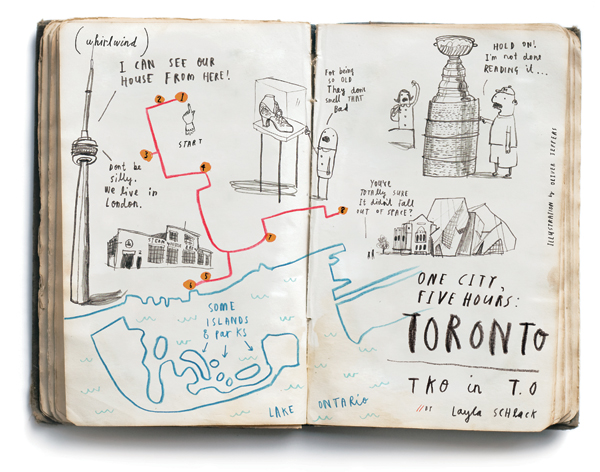 (whirlwind)
I CAN SEE OUR
HOUSE FROM HERE!
2
1
START
3
4
DONT BE
SILLY.
WE LIVE IN
LONDON.
STEAM WHISTLE
5
6
7
8
SOME
ISLANDS
& PARKS
LAKE ONTARIO
For being
so OLD
They dont
smell THAT
Bad
HOLD ON!
I'm not done
READING it...
YOU'RE
TOTALLY SURE
It didn't fall
OUT OF SPACE?
ILLUSTRATION by OLIVER JEFFERS
ONE CITY,
FIVE HOURS:
TORONTO
TKO in T.O
BY Layla SCHLACK